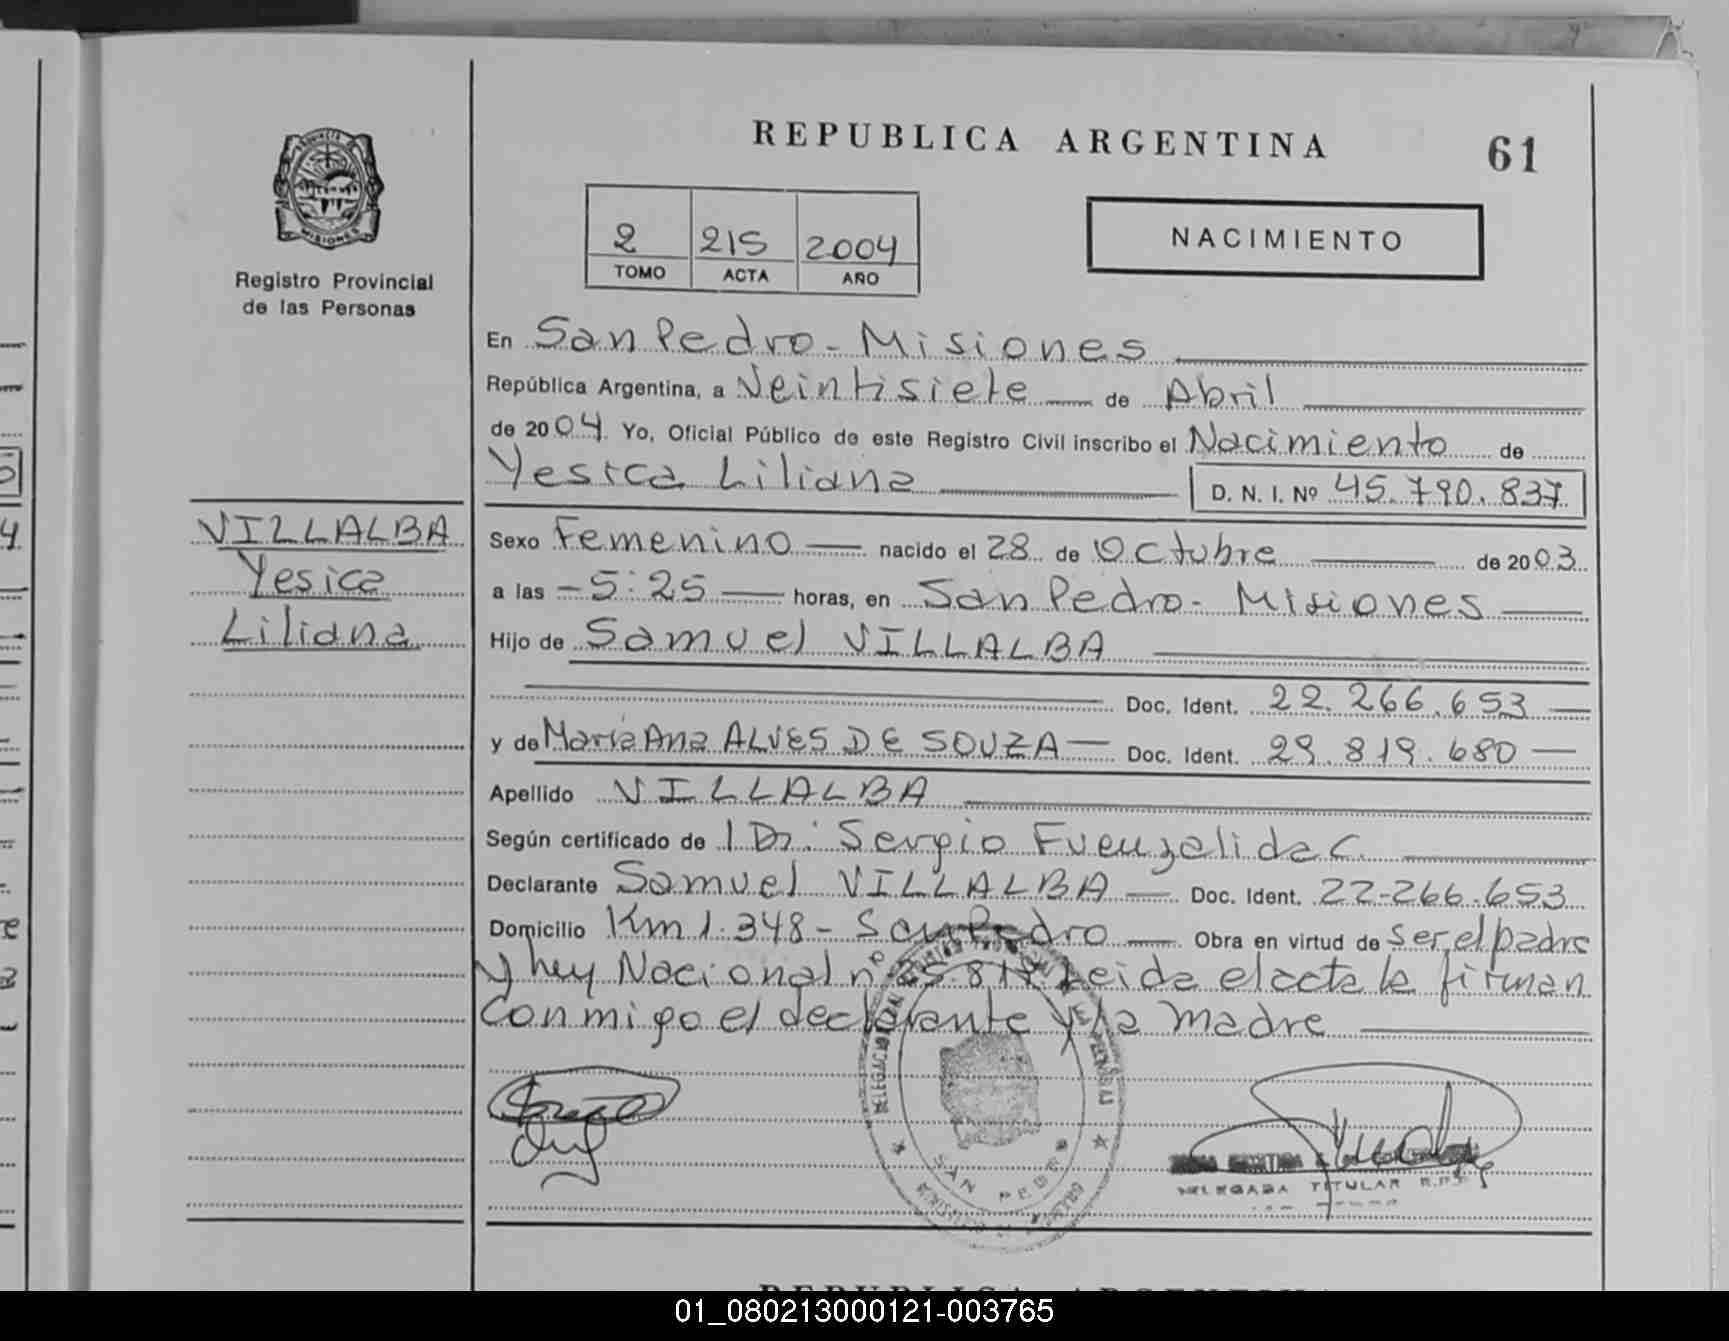 REPUBLICA ARGENTINA
61
PROVINCIA DE
MISIONES
Registro Provincial
de las Personas
2 215 2004
TOMO ACTA AÑO
NACIMIENTO
En San Pedro - Misiones
República Argentina, a Veintisiete de Abril
de 2004 Yo, Oficial Público de este Registro Civil inscribo el Nacimiento de
Yesica Liliana D. N. I. Nº 45.790.837
VILLALBA
Yesica
Liliana
Sexo Femenino nacido el 28 de Octubre de 2003
a las - 5:25 horas, en San Pedro - Misiones
Hijo de Samuel VILLALBA
Doc. Ident. 22.266.653
y de Maria Ana ALVES DE SOUZA Doc. Ident. 29.819.680
Apellido VILLALBA
Según certificado de Dr. Sergio Fuenzalida C.
Declarante Samuel VILLALBA Doc. Ident. 22-266.653
Domicilio Km 1.348 - San Pedro Obra en virtud de ser el padre
y ley Nacional nº Leida el acta la firman
Conmigo el declarante y la madre
SAN PEDRO
DELEGADA TITULAR R.P.P.
REPUBLICA ARGENTINA
01_080213000121-003765